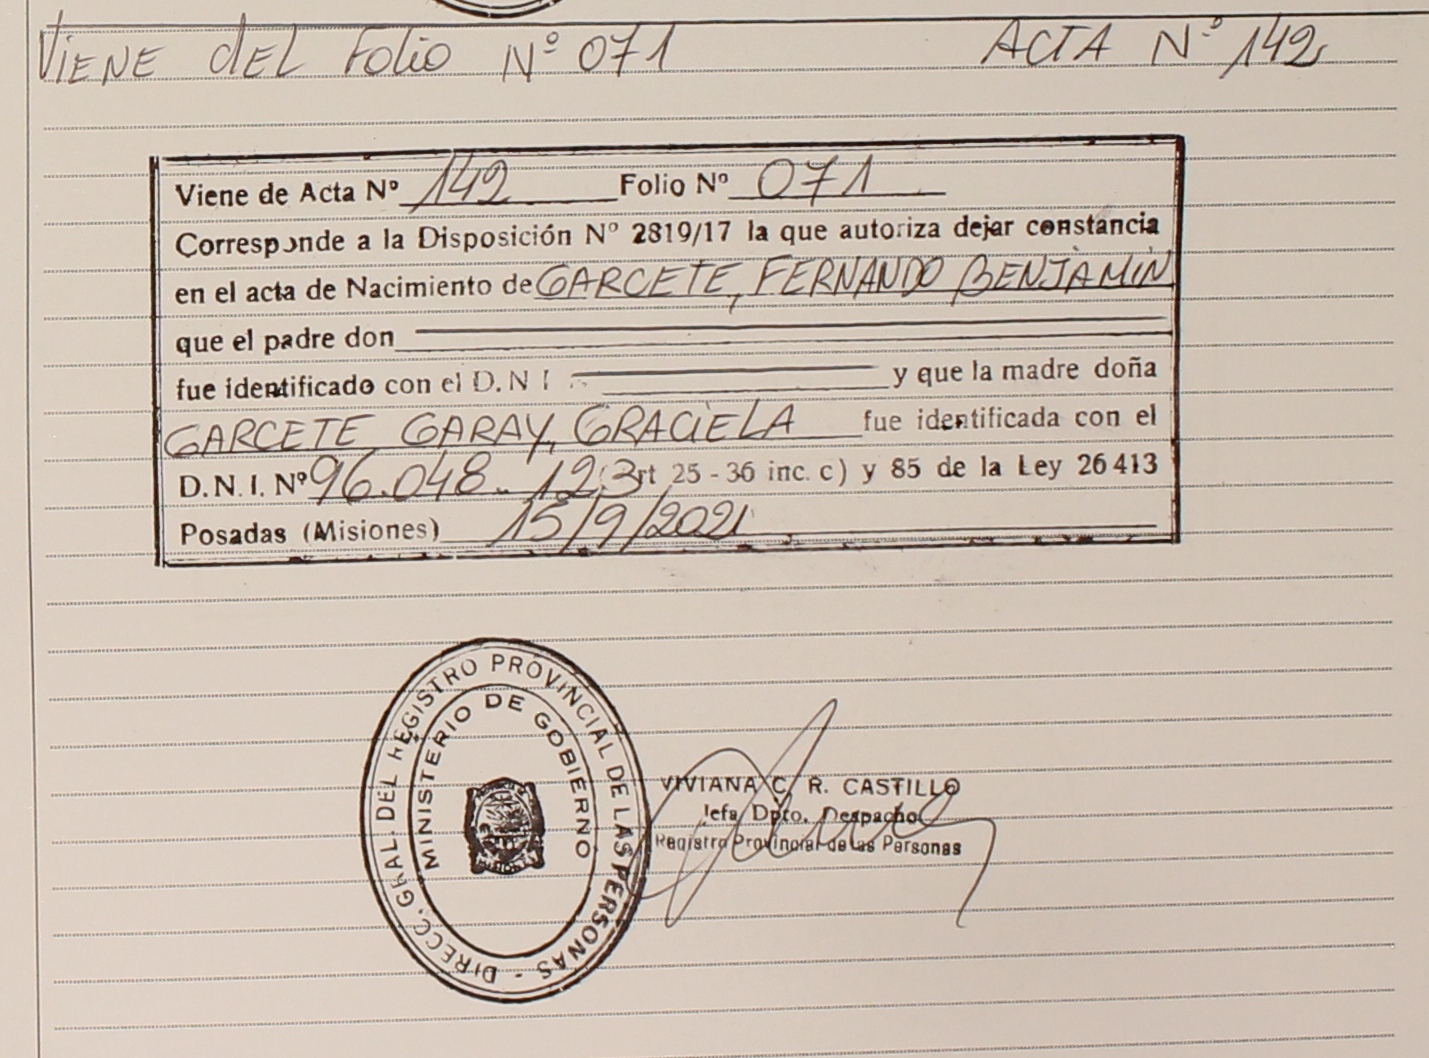 VIENE DEL FOLIO Nº 071 ACTA Nº 142
Viene de Acta Nº 142 Folio Nº 071
Corresponde a la Disposición Nº 2819/17 la que autoriza dejar constancia
en el acta de Nacimiento de GARCETE, FERNANDO BENJAMIN
que el padre don
fue identificado con el D.N I y que la madre doña
GARCETE GARAY, GRACIELA fue identificada con el
D.N.I. Nº 96.048.123 rt 25 - 36 inc. c) y 85 de la Ley 26413
Posadas (Misiones) 15/9/2021
DIRECC. GRAL. DEL REGISTRO PROVINCIAL DE LAS PERSONAS -
MINISTERIO DE GOBIERNO
VIVIANA C. R. CASTILLO
Jefa Dpto. Despacho
Registro Provincial de las Personas